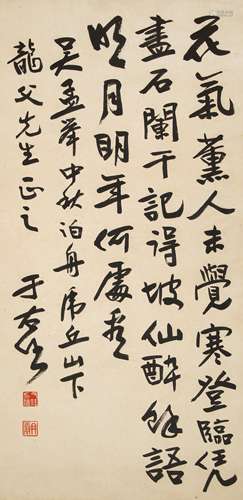 花氣薰人未覺寒登臨凭
盡石闌干記得坡仙醉餘語
明月明年何處看
吳孟舉中秋泊舟虎丘山下
龍父先生正之
于右任